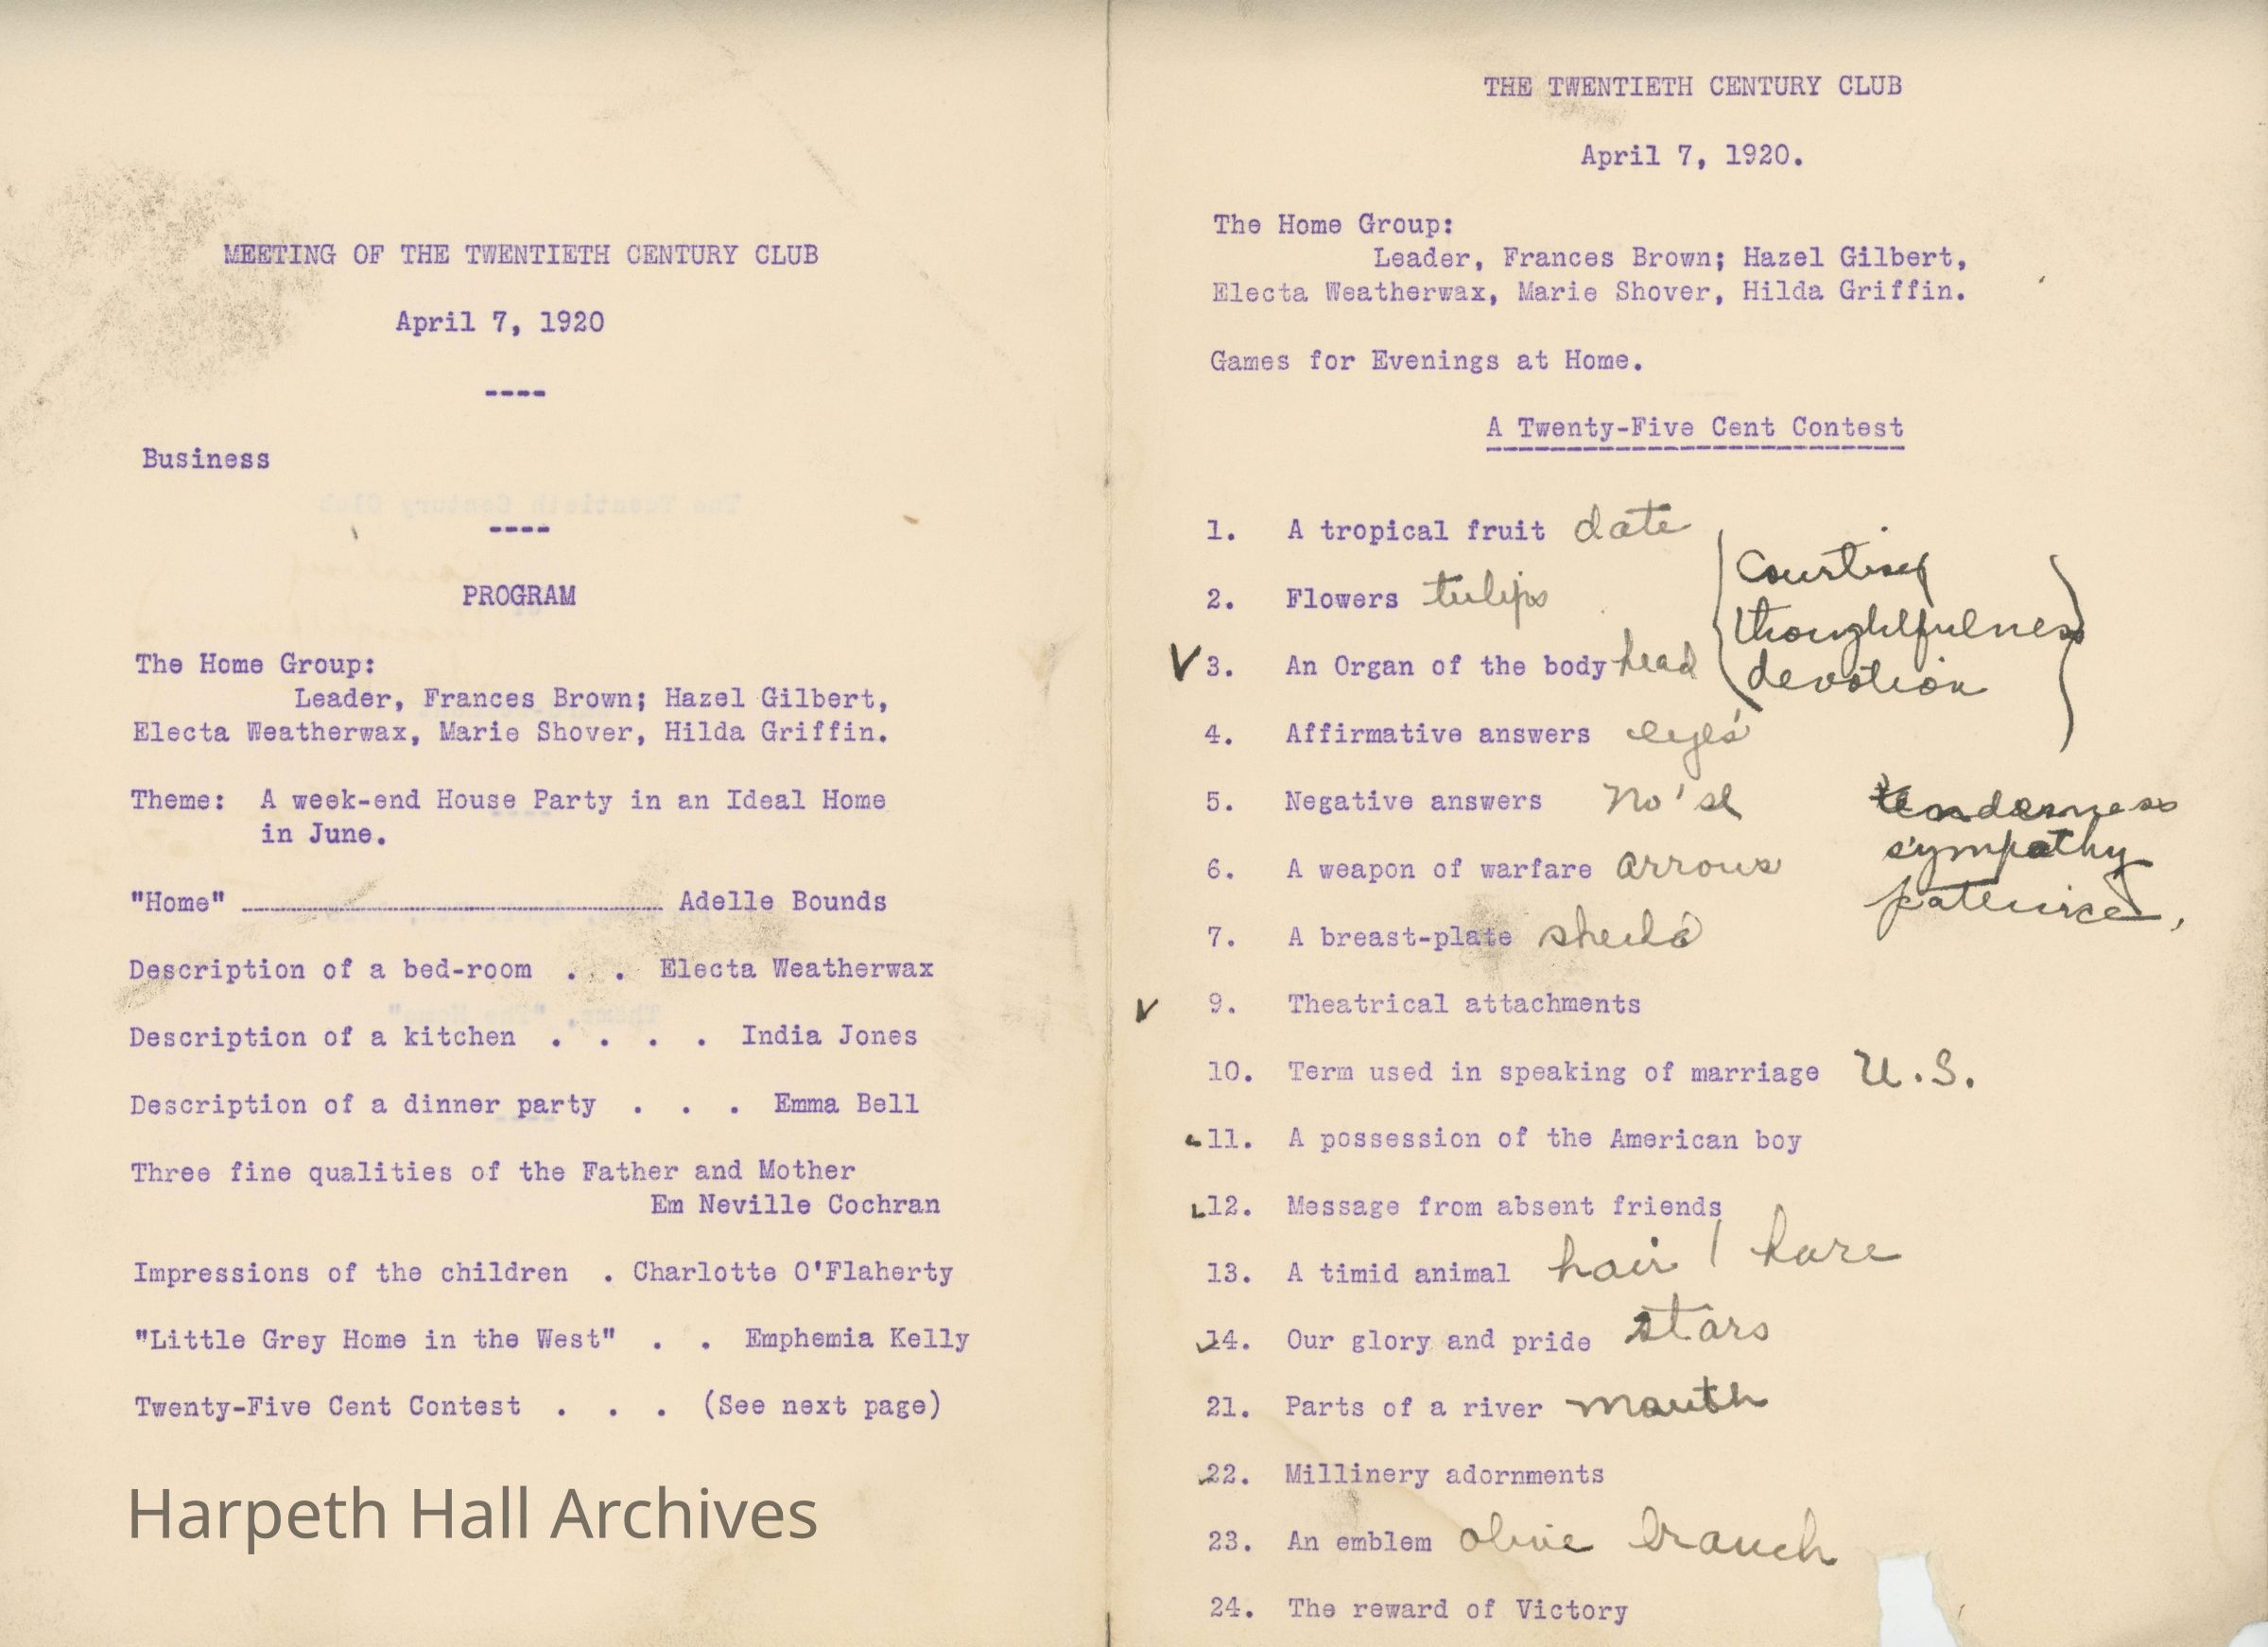 MEETING OF THE TWENTIETH CENTURY CLUB
April 7, 1920
----
Business
----
PROGRAM
The Home Group:
Leader, Frances Brown; Hazel Gilbert,
Electa Weatherwax, Marie Shover, Hilda Griffin.
Theme: A week-end House Party in an Ideal Home
in June.
"Home" Adelle Bounds
Description of a bed-room . . Electa Weatherwax
Description of a kitchen . . . . India Jones
Description of a dinner party . . . Emma Bell
Three fine qualities of the Father and Mother
Em Neville Cochran
Impressions of the children . Charlotte O'Flaherty
"Little Grey Home in the West" . . Emphemia Kelly
Twenty-Five Cent Contest . . . (See next page)
Harpeth Hall Archives
THE TWENTIETH CENTURY CLUB
April 7, 1920.
The Home Group:
Leader, Frances Brown; Hazel Gilbert,
Electa Weatherwax, Marie Shover, Hilda Griffin.
Games for Evenings at Home.
A Twenty-Five Cent Contest
1. A tropical fruit date
2. Flowers tulips
3. An Organ of the body head
thoughtfulness
devotion
4. Affirmative answers eyes
5. Negative answers
tenderness
6. A weapon of warfare arrows
sympathy
7. A breast-plate
9. Theatrical attachments
10. Term used in speaking of marriage U.S.
11. A possession of the American boy
12. Message from absent friends
13. A timid animal hair / hare
14. Our glory and pride stars
21. Parts of a river mouth
22. Millinery adornments
23. An emblem olive branch
24. The reward of Victory